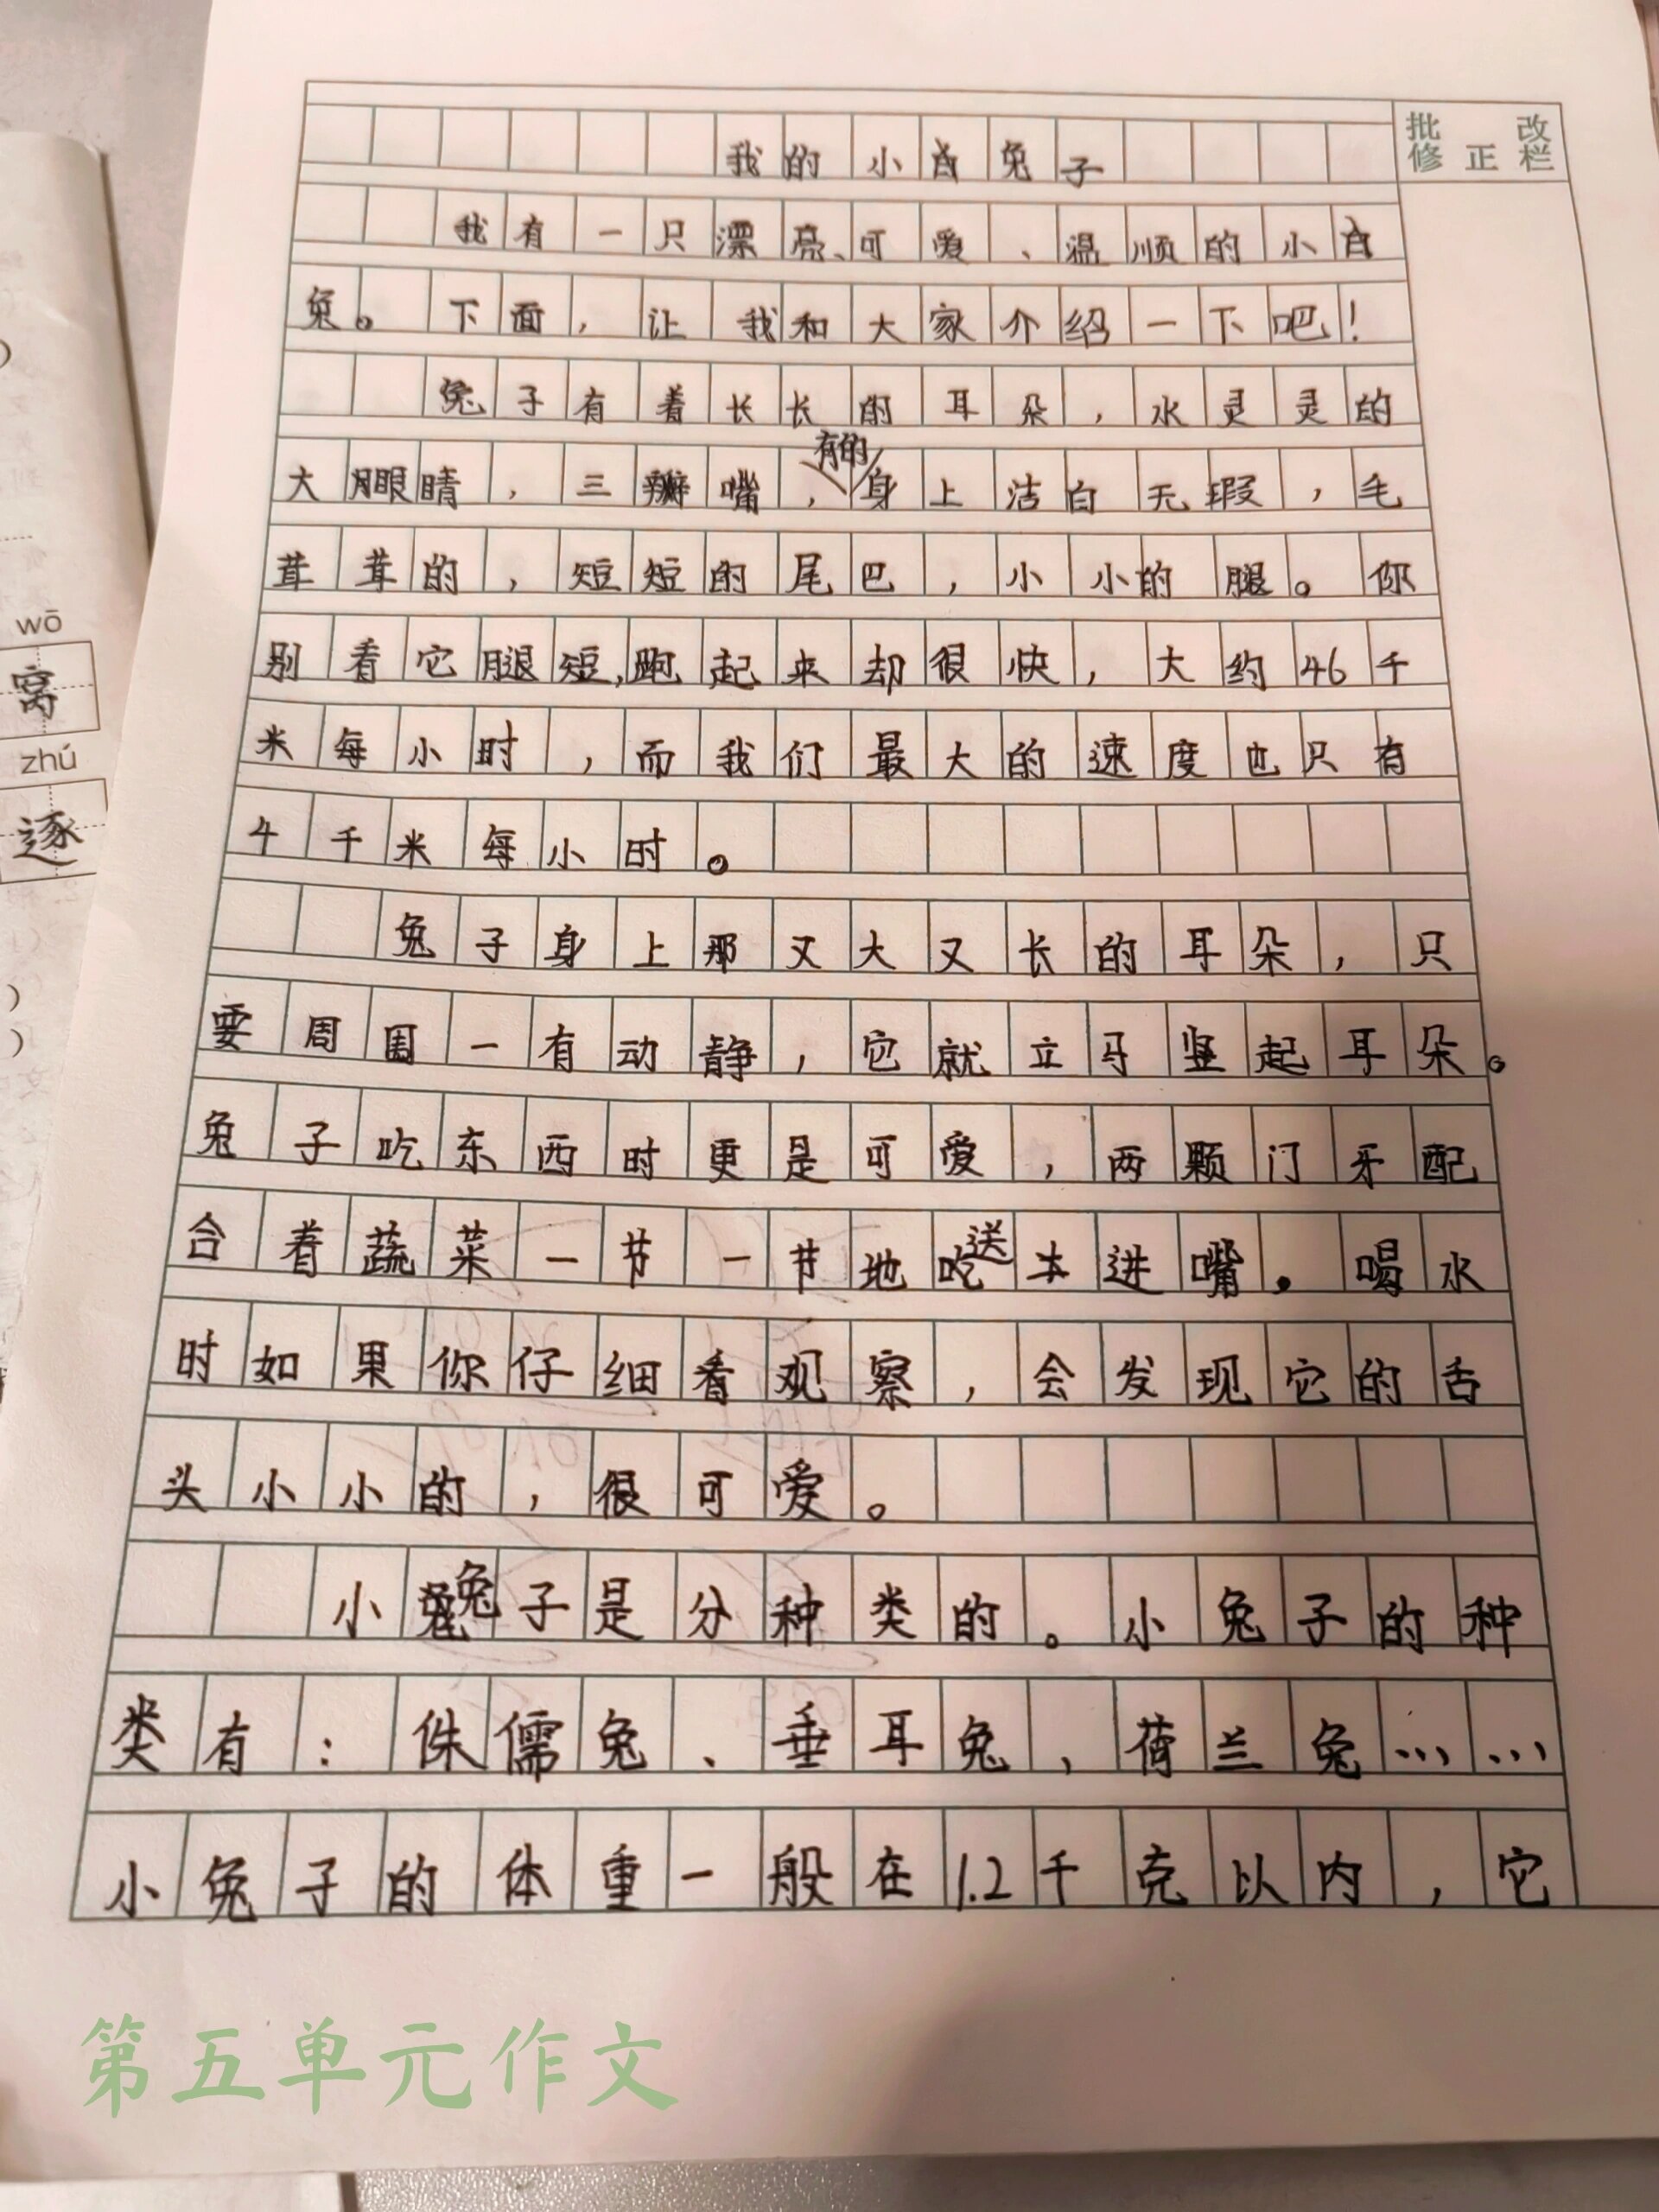 批 改
修 正 栏
我的小白兔子
我有一只漂亮、可爱、温顺的小白
兔。下面，让我和大家介绍一下吧！
兔子有着长长的耳朵，水灵灵的
大眼睛，三瓣嘴，有的身上洁白无瑕，毛
茸茸的，短短的尾巴，小小的腿。你
别看它腿短，跑起来却很快，大约46千
米每小时，而我们最大的速度也只有
4千米每小时。
兔子身上那又大又长的耳朵，只
要周围一有动静，它就立马竖起耳朵。
兔子吃东西时更是可爱，两颗门牙配
合着蔬菜一节一节地吃送本进嘴。喝水
时如果你仔细看观察，会发现它的舌
头小小的，很可爱。
小兔子是分种类的。小兔子的种
类有：侏儒兔、垂耳兔，荷兰兔……
小兔子的体重一般在1.2千克以内，它
wō
窝
zhú
逐
第五单元作文